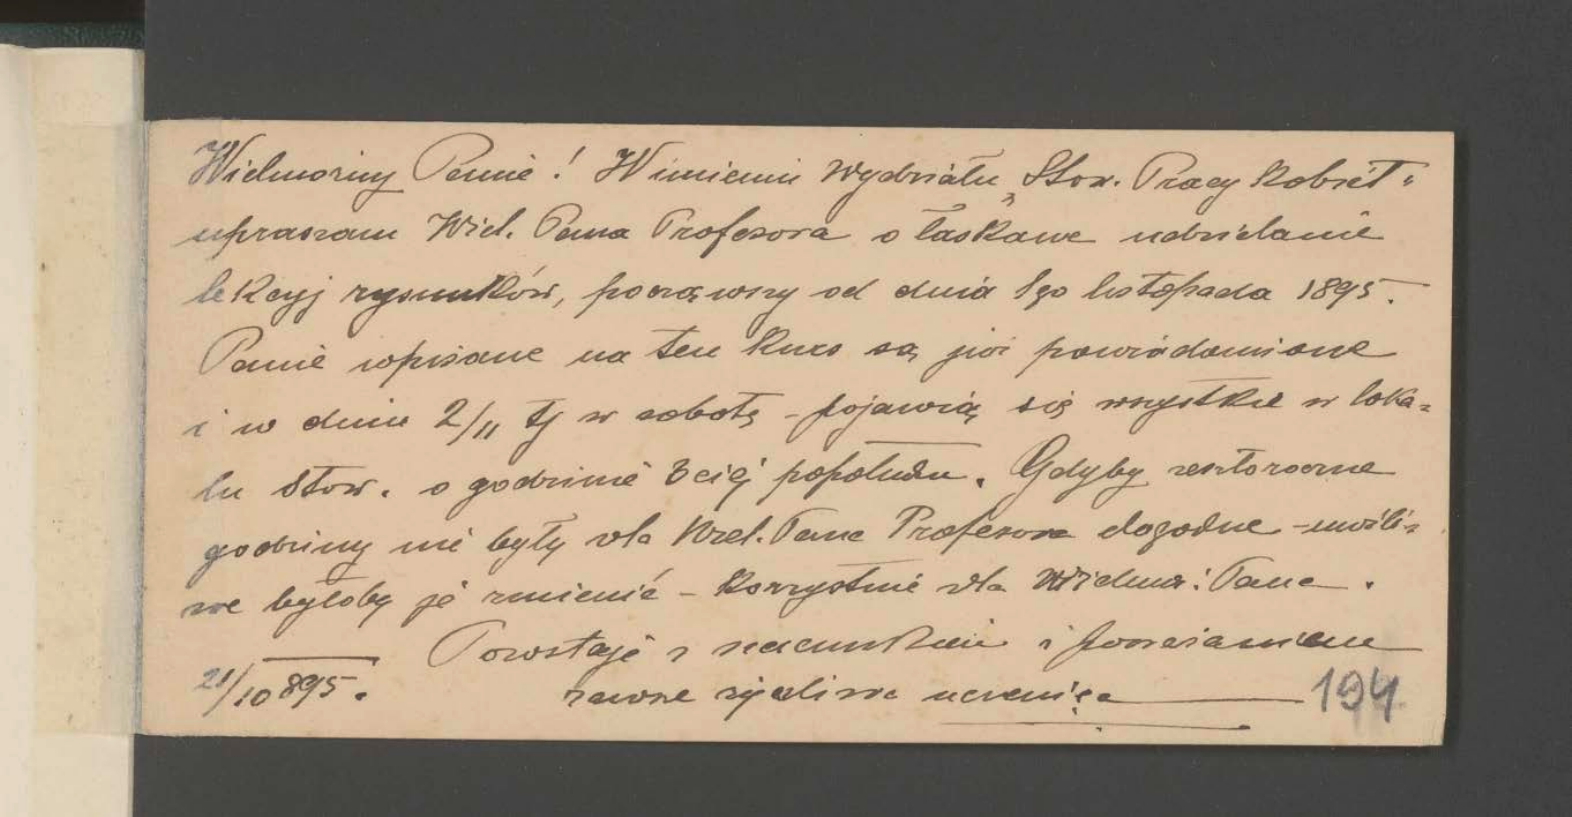 Wielmożny Panie! W imieniu Wydziału „Stow. Pracy Kobiet"
upraszam Wiel. Pana Profesora o łaskawe udzielanie
lekcyj rysunków, począwszy od dnia 1go listopada 1895.
Panie wpisane na ten kurs są już powiadomione
i w dniu 2/11 tj w sobotę – pojawią się wszystkie w loka=
lu Stow. o godzinie 3ciej popołudn. Gdyby
godziny nie były dla Wiel. Pana Profesora dogodne – możli=
we byłoby je zmienić – korzystnie dla Wielmoż: Pana.
Pozostaję z szacunkiem i poważaniem
21/10 895. zawsze życzliwa uczenica
194